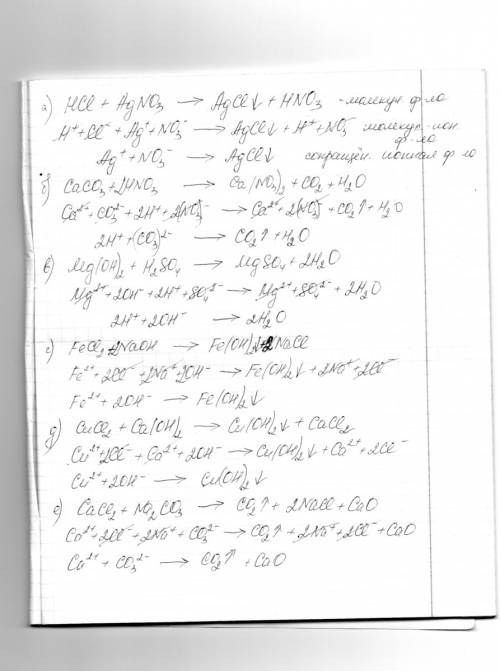 а) HCl + AgNO₃ → AgCl↓ + HNO₃ - молекул. ф-ла
H⁺ + Cl⁻ + Ag⁺ + NO₃⁻ → AgCl↓ + H⁺ + NO₃⁻ молекул-ион ф-ла
Ag⁺ + NO₃⁻ → AgCl↓ сокращён. ионная ф-ла
б) CaCO₃ + 2HNO₃ → Ca(NO₃)₂ + CO₂ + H₂O
Ca²⁺ + CO₃²⁻ + 2H⁺ + 2(NO₃)⁻ → Ca²⁺ + 2(NO₃)⁻ + CO₂↑ + H₂O
2H⁺ + (CO₃)²⁻ → CO₂↑ + H₂O
в) Mg(OH)₂ + H₂SO₄ → MgSO₄ + 2H₂O
Mg²⁺ + 2OH⁻ + 2H⁺ + SO₄²⁻ → Mg²⁺ + SO₄²⁻ + 2H₂O
2H⁺ + 2OH⁻ → 2H₂O
г) FeCl₂ + 2NaOH → Fe(OH)₂↓ + 2NaCl
Fe²⁺ + 2Cl⁻ + 2Na⁺ + 2OH⁻ → Fe(OH)₂↓ + 2Na⁺ + 2Cl⁻
Fe²⁺ + 2OH⁻ → Fe(OH)₂↓
д) CuCl₂ + Ca(OH)₂ → Cu(OH)₂↓ + CaCl₂
Cu²⁺ + 2Cl⁻ + Ca²⁺ + 2OH⁻ → Cu(OH)₂↓ + Ca²⁺ + 2Cl⁻
Cu²⁺ + 2OH⁻ → Cu(OH)₂↓
е) CaCl₂ + Na₂CO₃ → CO₂↑ + 2NaCl + CaO
Ca²⁺ + 2Cl⁻ + 2Na⁺ + CO₃²⁻ → CO₂↑ + 2Na⁺ + 2Cl⁻ + CaO
Ca²⁺ + CO₃²⁻ → CO₂↑ + CaO